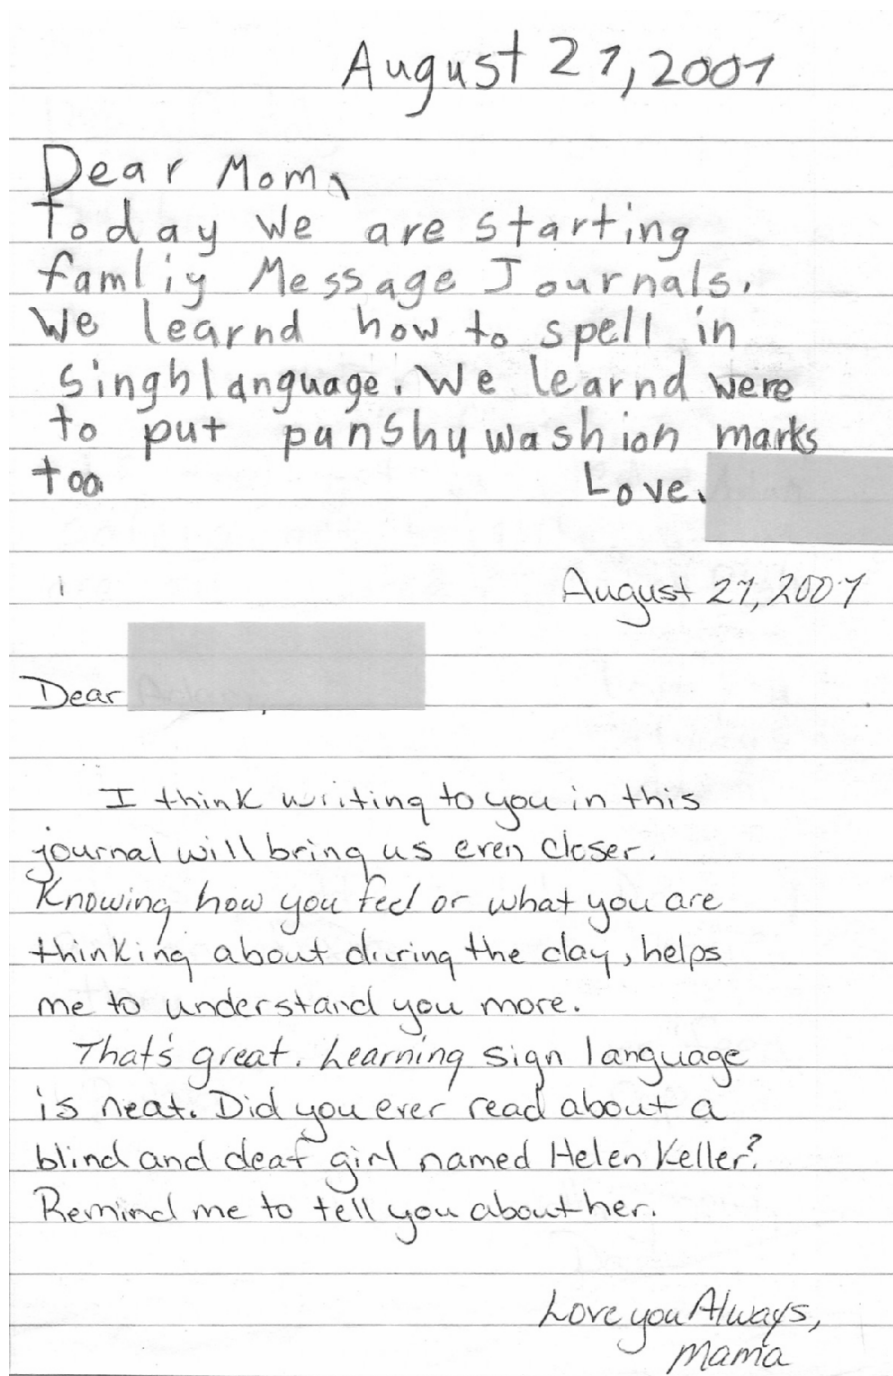 August 27, 2001
Dear Mom,
today we are starting
famliy Message Journals.
We learnd how to spell in
singhlanguage. We learnd were
to put panshuwashion marks
too. Love,
August 27, 2001
Dear ,
I think writing to you in this
journal will bring us even closer.
Knowing how you feel or what you are
thinking about during the day, helps
me to understand you more.
That's great. Learning sign language
is neat. Did you ever read about a
blind and deaf girl named Helen Keller?
Remind me to tell you about her.
Love you Always,
Mama